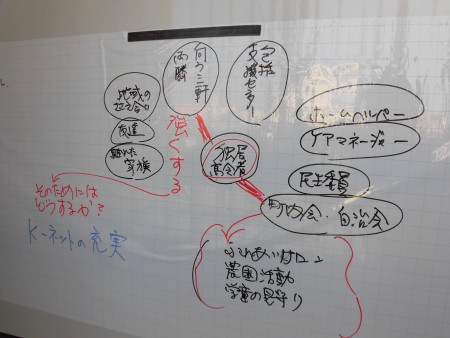 向う三軒
両隣
包括
支援センター
地域の
友達
離れた
家族
強くする
独居
高令者
ホームヘルパー
ケアマネージャー
民生委員
町内会・自治会
そのためには
どうするか?
K-ネットの充実
ふれあいサロン
農園活動
学童の見守り